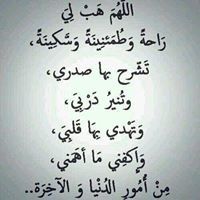 اللَّهُمَ هَبْ لِيَ
رَاحةً وَطُمَئنِينَةً وَسَّكِينَةً،
تَشّرح بِها صدري،
وتُنيرُ دَرْبِيَ،
وَتَهْدي بِهَا قَلبِيَ،
وَإكفِني مَا أهَمَني،
مِنْ أُمُورِ الدُنْيا وَ الآخِرَة..